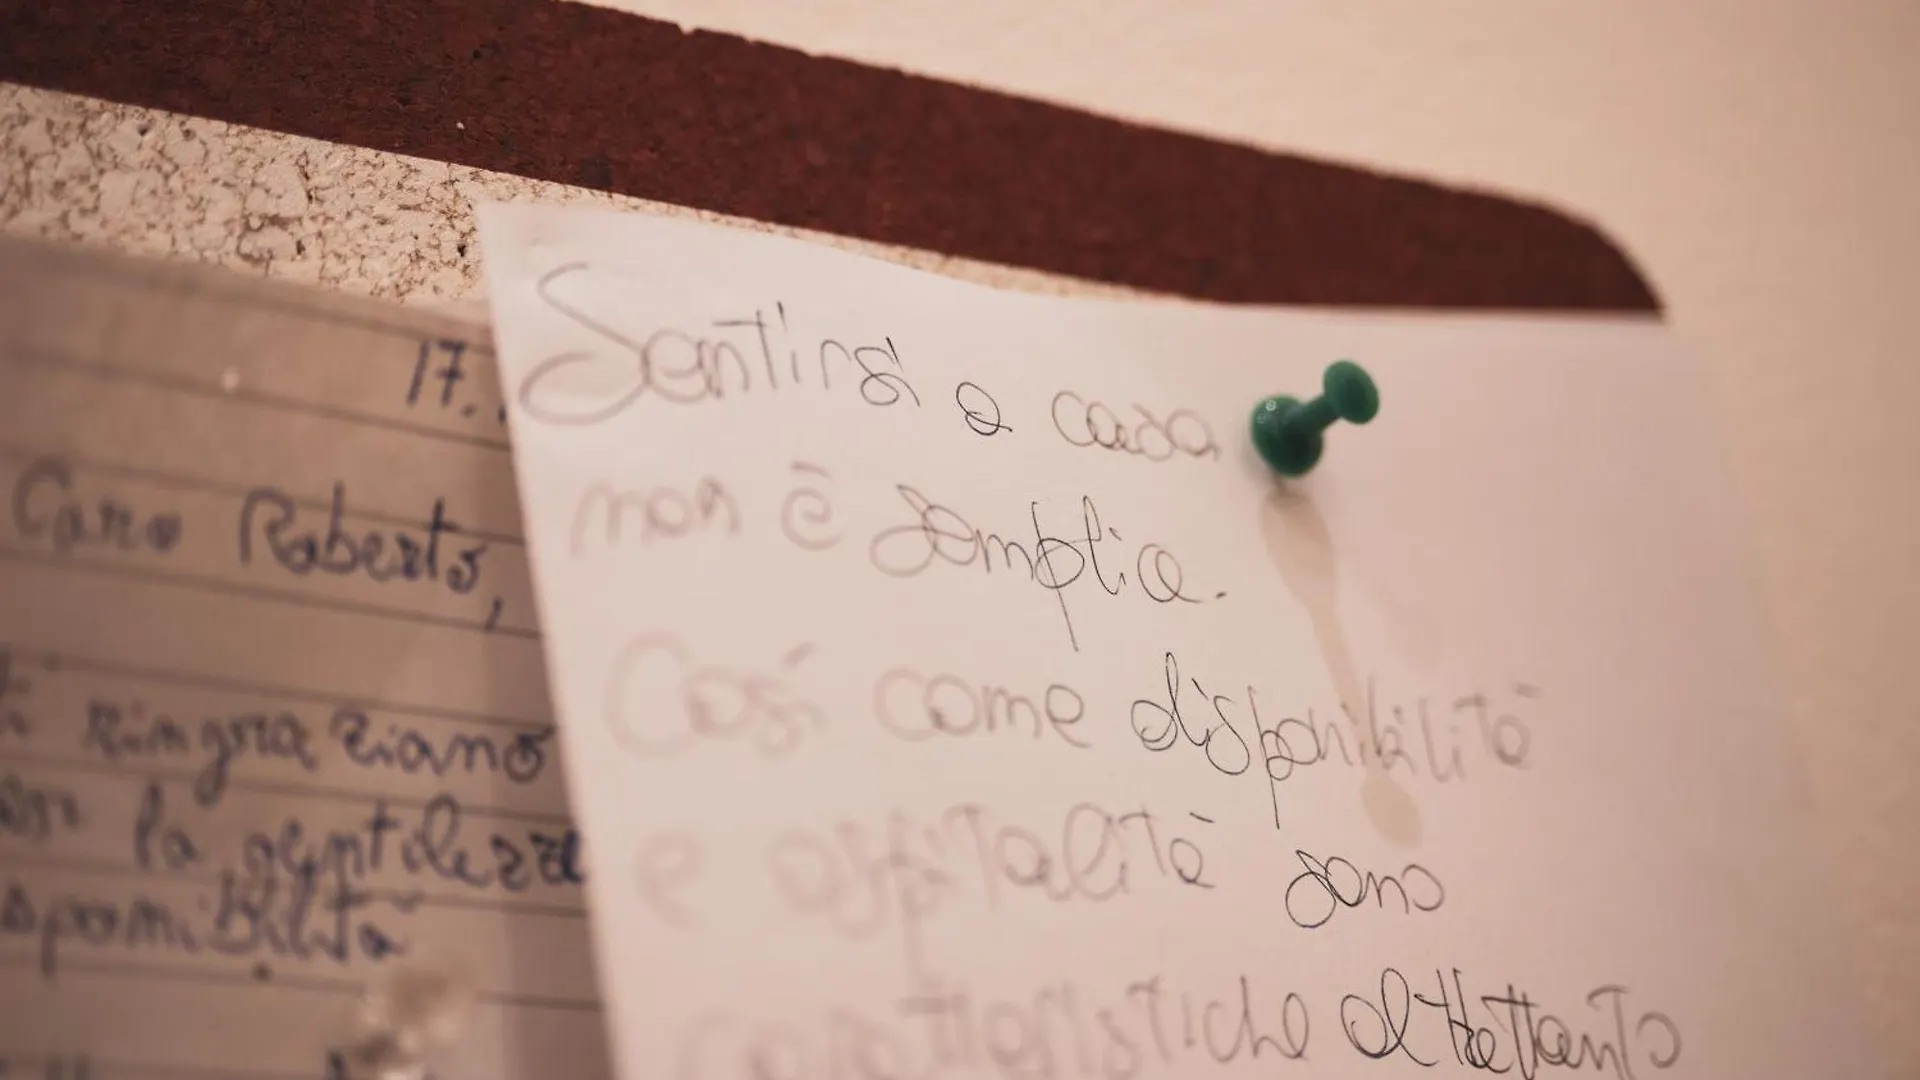 17.
Caro Roberto,
ti ringraziano
la gentilezza
sponibilità
Sentirsi a casa
non è semplice.
Così come disponibilità
e ospitalità sono
caratteristiche altrettanto